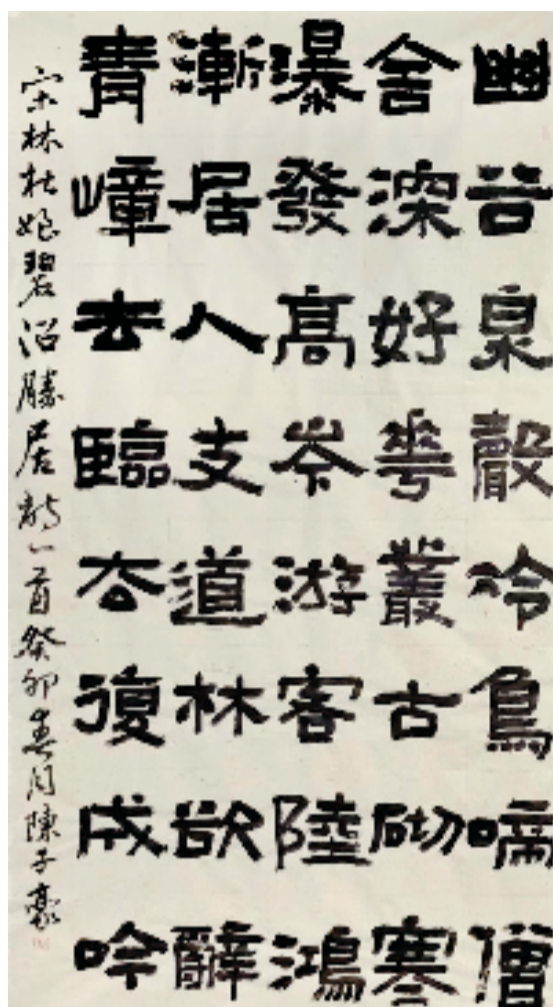 幽谷泉聲冷鳥啼僧
舍深好花叢古砌寒
瀑發高岑游客陸鴻
漸居人支道林欲辭
青嶂去臨谷復成吟
宋林杜娘碧沼勝居詩一首癸卯春月陳子豪